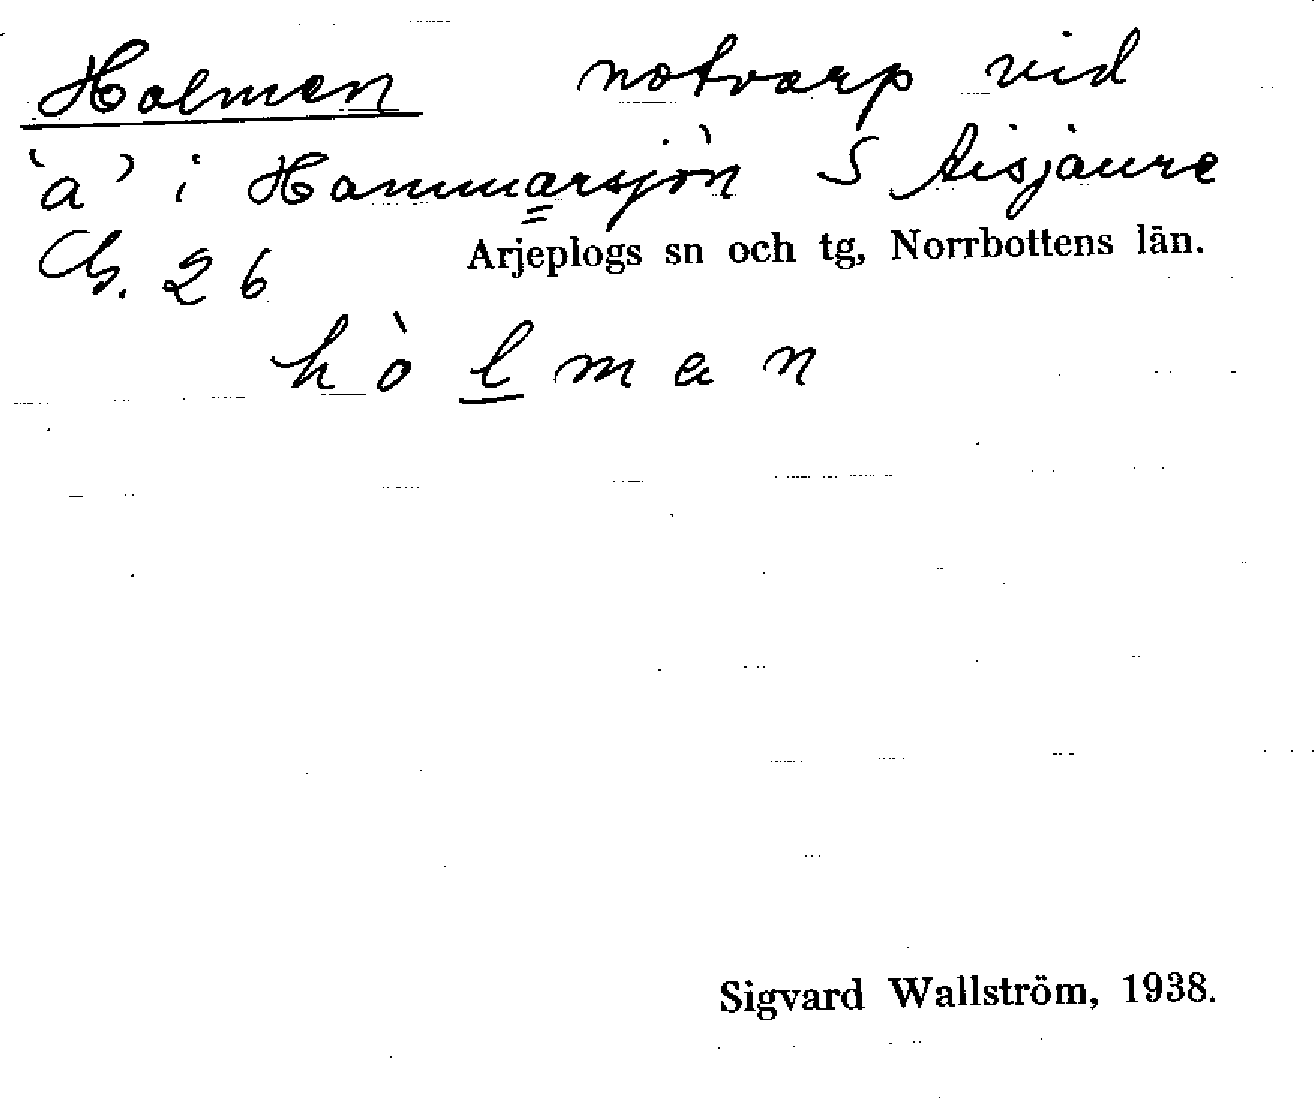 Holmen notvarp vid
'a' i Hammarsjön S Aisjaure
26
Arjeplogs sn och tg, Norrbottens län.
hòlman
Sigvard Wallström, 1938.